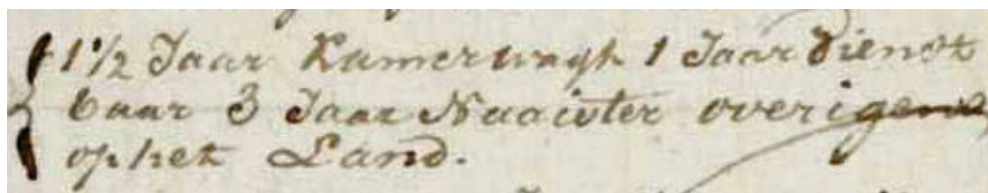 1½ Jaar Kamerwagt 1 Jaar dienst
baar 3 Jaar Naaister overigens
op het Land.